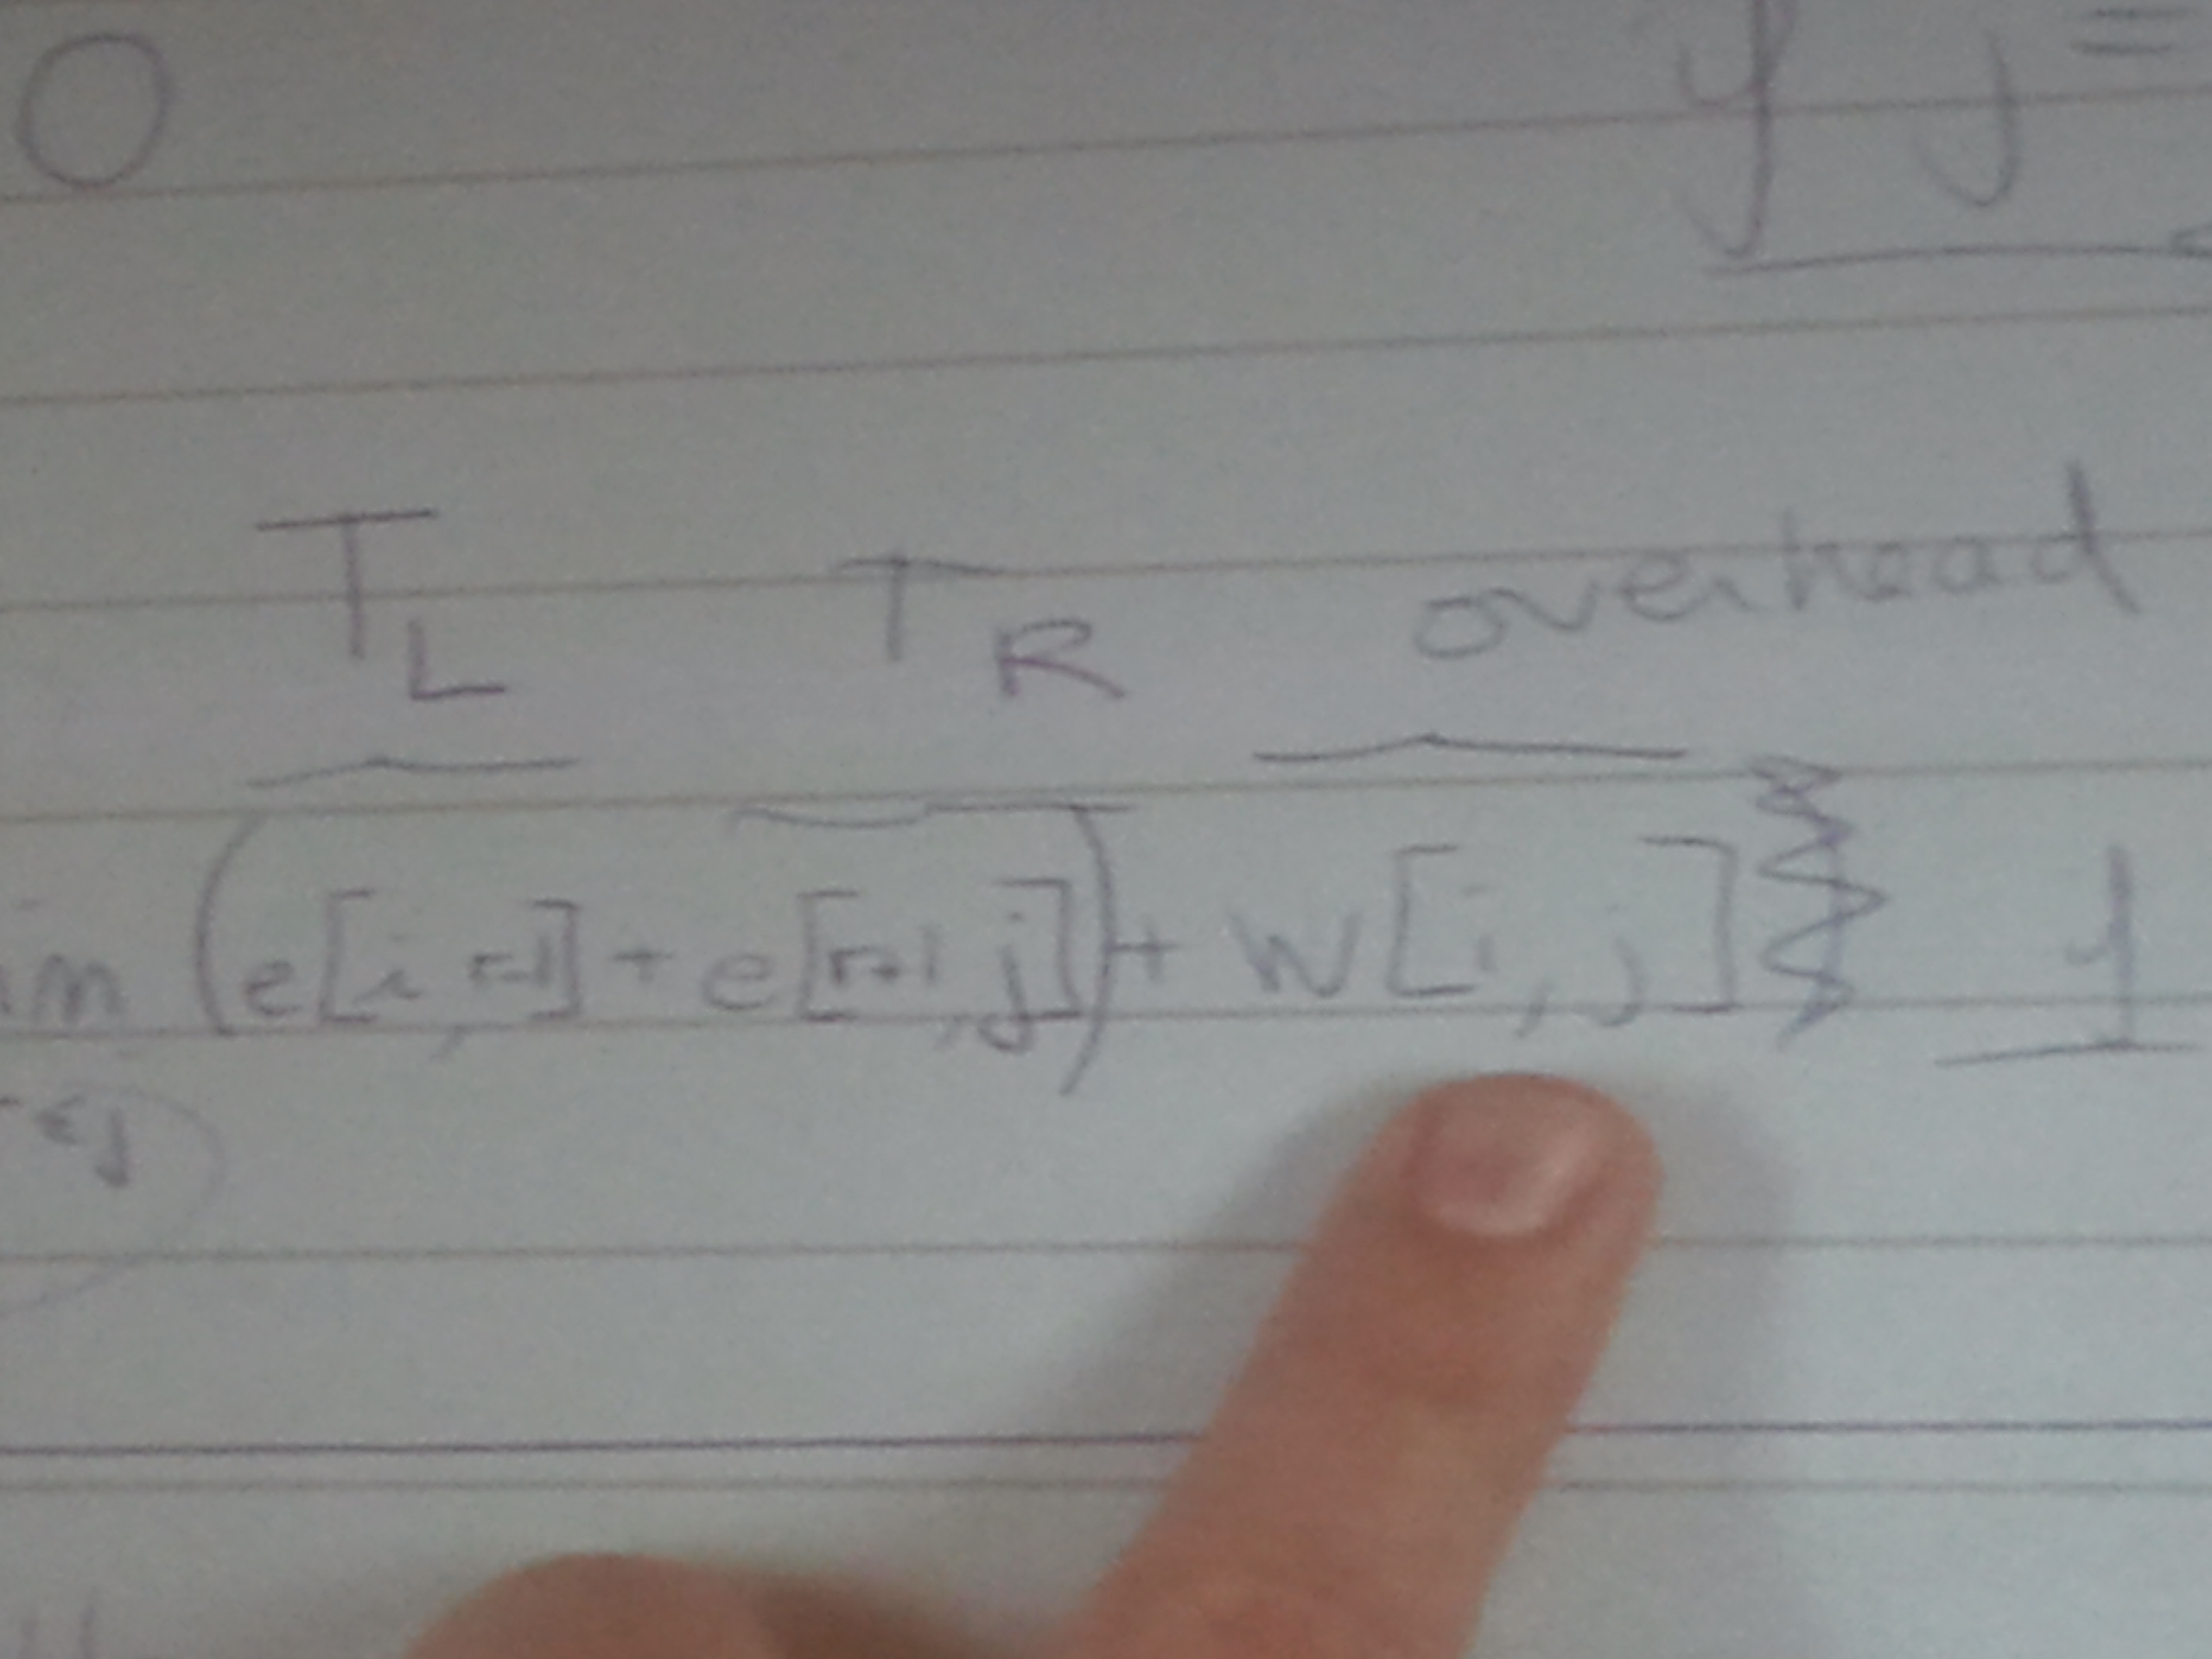 0 if j =
T_L T_R overhead
min (e[i, r-1] + e[r+1, j]) + w[i, j] 1
r ≤ j